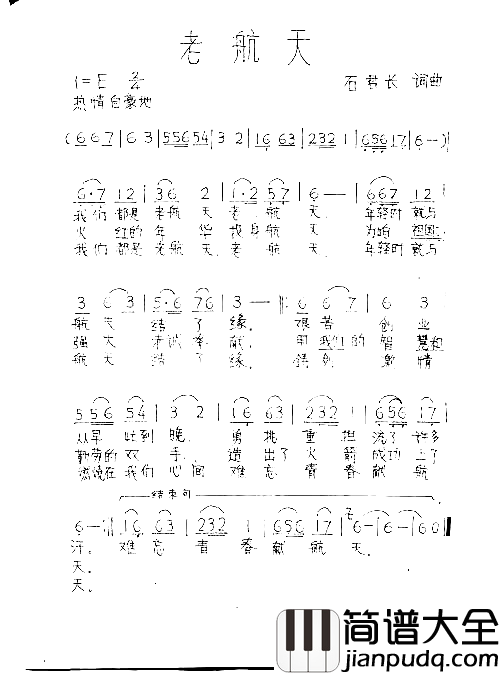 老航天
1=E 2/4
石君长 词曲
热情自豪地
(667|63|556 54|32|16 63|232 1|656 17|6-)|
6·7 12|36 2|1·2 57|6--|667 12|
我们都是老航天老航天.年轻时就与
火红的年华我身航天为咱祖国
我们都是老航天老航天.年轻时就与
3 6 3|5·6 76|3--||:6 6 7|6 3|
航天结了缘.艰苦创业
强大来试奉献.用我们的智慧和
航天结了缘.激情
556 54|3 2|16 63|232 1|656 17|
从早忙到晚.勇挑重担流了许多
勤劳的双手.造出了火箭成功上了
燃烧在我们心间难忘青春献航
结束句
6--:||16 63|232 1|656 17|6-|6-|60||
汗.难忘青春献航天.
天.
天.
简谱大全
jianpudq.com